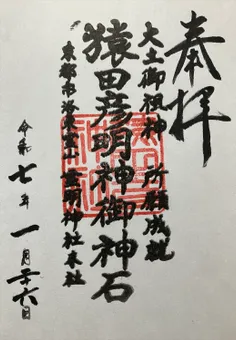 奉拝
大土御祖神 所願成就
猿田彦明神御神石
京都市
神社本社
令和七年一月二十六日